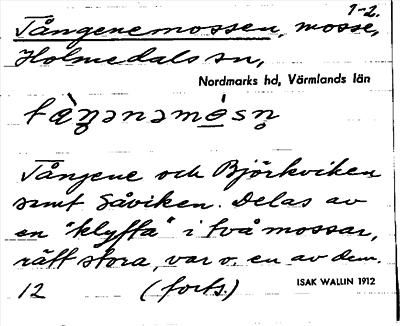 1-2.
Tångenemossen, mosse,
Holmedals sn,
Nordmarks hd, Värmlands län
Tångene och Björkviken
samt Såviken. Delas av
en "klyfta" i två mossar,
rätt stora, var o. en av dem.
12 (forts.) ISAK WALLIN 1912